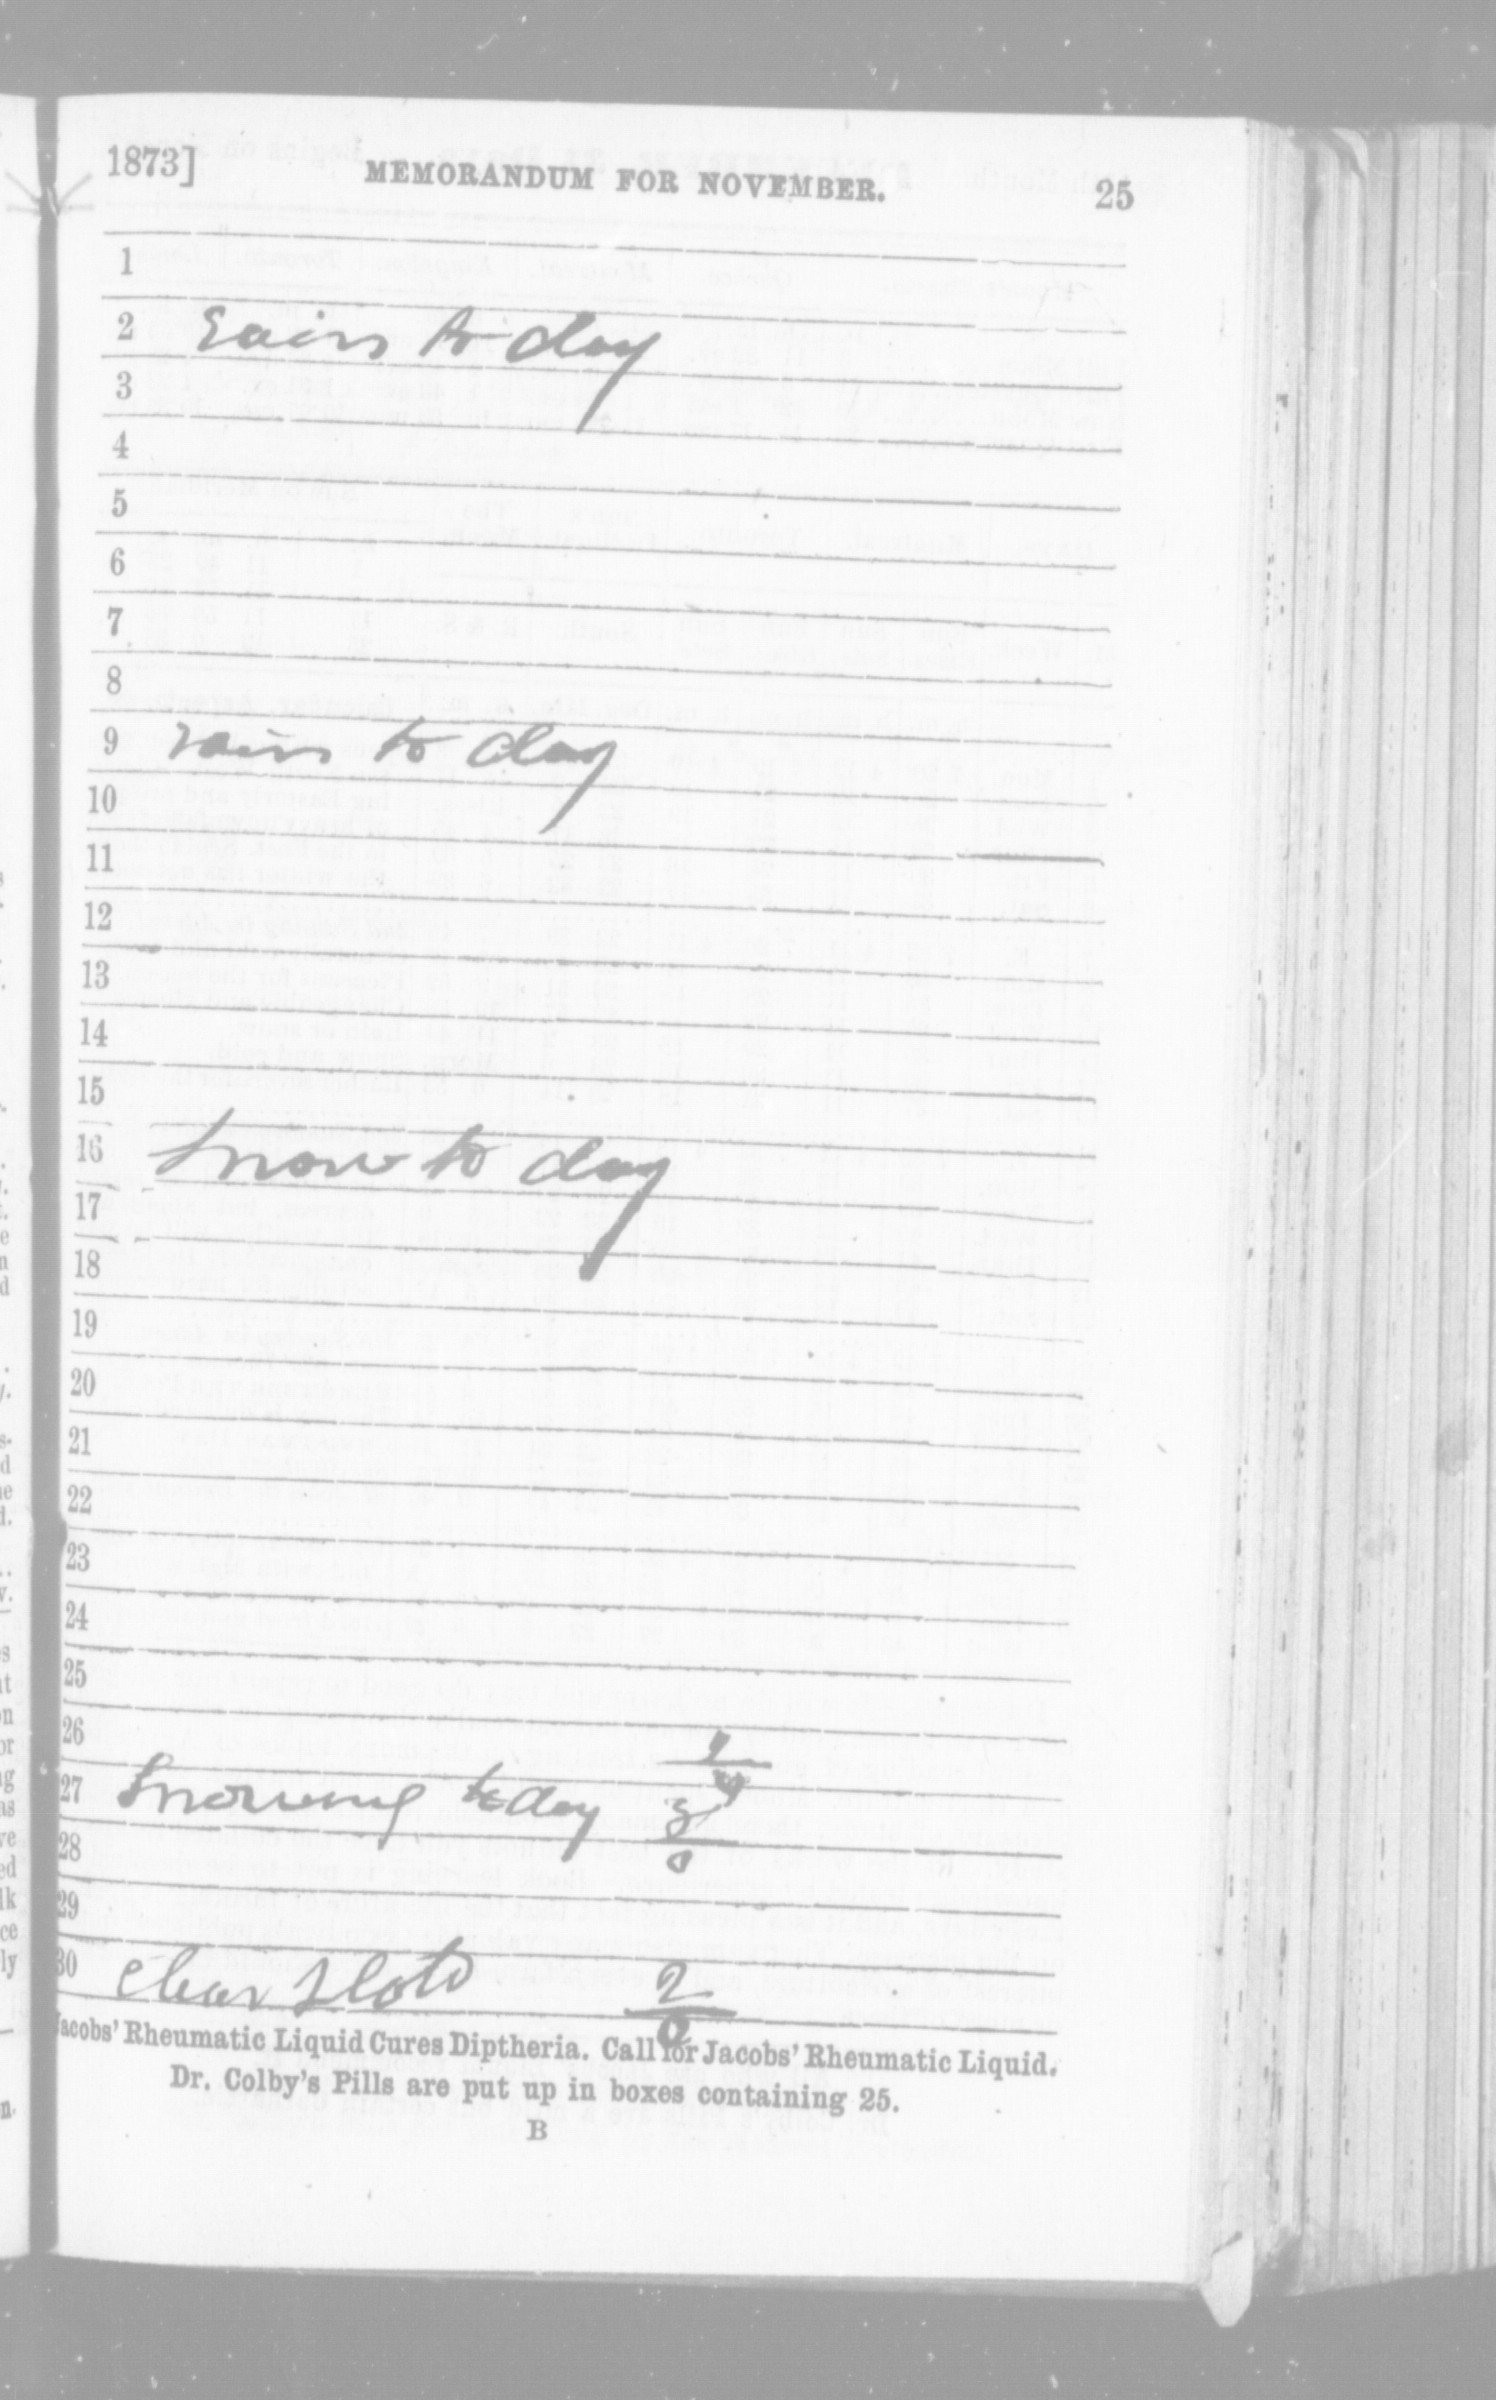 1873] MEMORANDUM FOR NOVEMBER. 25
1
2 rain to day
3
4
5
6
7
8
9 rain to day
10
11
12
13
14
15
16 Snow to day
17
18
19
20
21
22
23
24
25
26
27 Snowing to day 3
28 0
29
30 clear 2
0
Jacobs' Rheumatic Liquid Cures Diptheria. Call for Jacobs' Rheumatic Liquid.
Dr. Colby's Pills are put up in boxes containing 25.
B